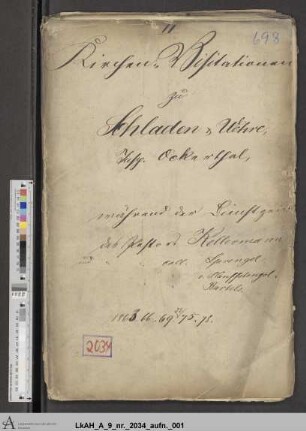 11
698
Kirchen-Visitationen
zu
Schladen &
Insp. Ockerthal,
während der Dienstzeit
des Pastors Kellermann
" coll. Sprengel
1863. 66. 69. 72. 75. 78.
2034
LkAH_A_9_nr._2034_aufn._001